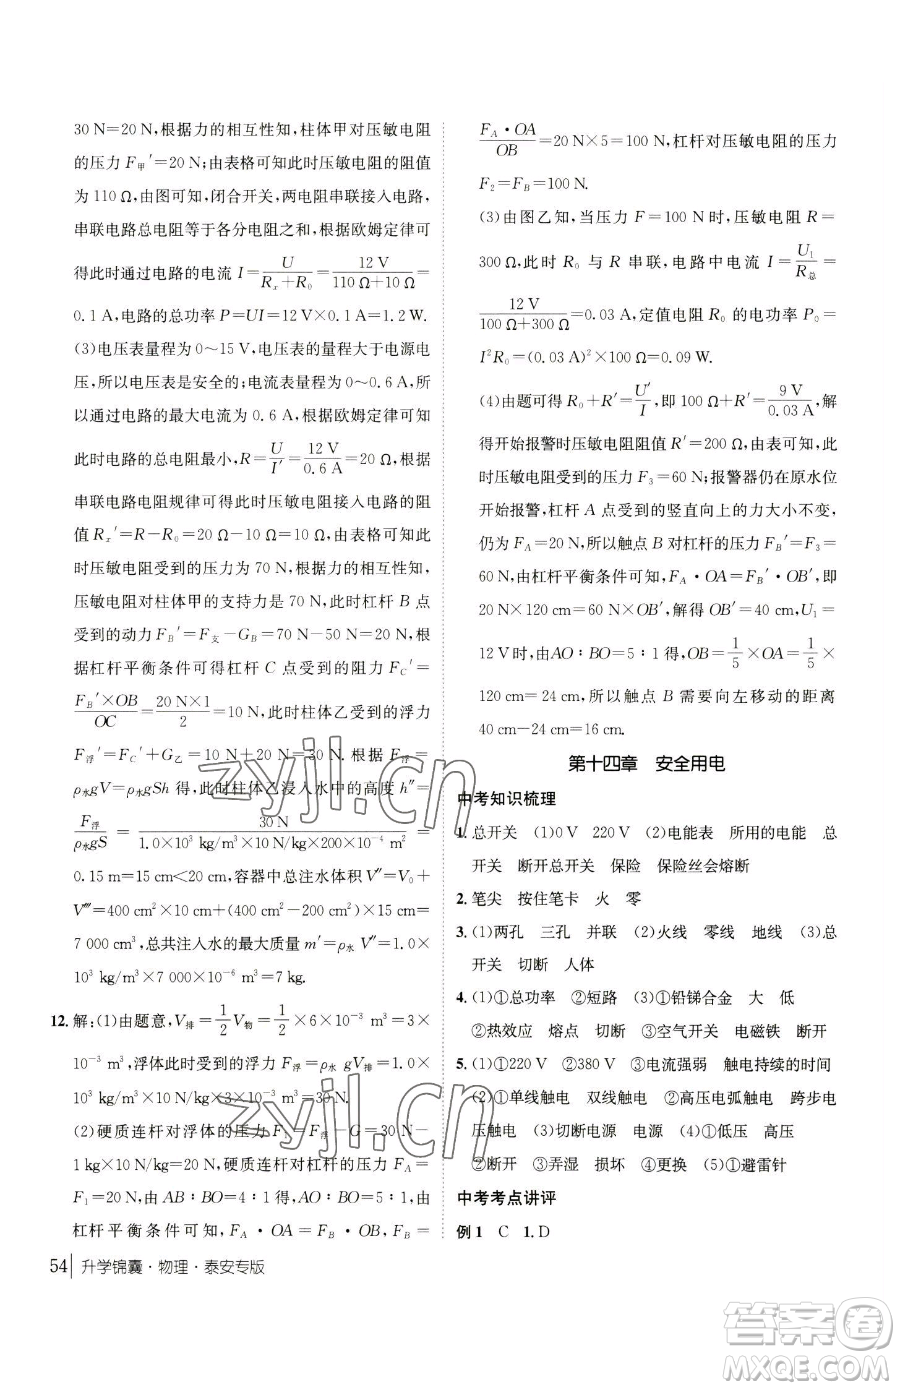 30 N=20 N,根据力的相互性知,柱体甲对压敏电阻
的压力 F甲′=20 N;由表格可知此时压敏电阻的阻值
为 110 Ω,由图可知,闭合开关,两电阻串联接入电路,
串联电路总电阻等于各分电阻之和,根据欧姆定律可
得此时通过电路的电流 I=U/(Rx+R0)=12 V/(110 Ω+10 Ω)=
0.1 A,电路的总功率 P=UI=12 V×0.1 A=1.2 W.
(3)电压表量程为 0～15 V,电压表的量程大于电源电
压,所以电压表是安全的;电流表量程为 0～0.6 A,所
以通过电路的最大电流为 0.6 A,根据欧姆定律可知
此时电路的总电阻最小,R=U/I′=12 V/0.6 A=20 Ω,根据
串联电路电阻规律可得此时压敏电阻接入电路的阻
值 Rx′=R-R0=20 Ω-10 Ω=10 Ω,由表格可知此
时压敏电阻受到的压力为 70 N,根据力的相互性可知
压敏电阻对柱体甲的支持力是 70 N,此时杠杆 B 点
受到的动力 FB′=F支-GB=70 N-50 N=20 N,
根据杠杆平衡条件可得杠杆 C 点受到的阻力 FC′=
FB′×OB/OC=20 N×1/2=10 N,此时柱体乙受到的浮力
F浮′=FC′+G乙=10 N+20 N=30 N.根据 F浮=
ρ水gV=ρ水gSh 得,此时柱体乙浸入水中的高度 h″=
F浮/ρ水gS=30 N/(1.0×10³ kg/m³×10 N/kg×200×10⁻⁴ m²)=
0.15 m=15 cm<20 cm,容器中总注水体积 V″=V0+
V‴=400 cm²×10 cm+(400 cm²-200 cm²)×15 cm=
7 000 cm³,总共注入水的最大质量 m′=ρ水 V″=1.0×
10³ kg/m³×7 000×10⁻⁶ m³=7 kg.
12.解:(1)由题意,V排=1/2V物=1/2×6×10⁻³ m³=3×
10⁻³ m³,浮体此时受到的浮力 F浮=ρ水 gV排=1.0×
10³ kg/m³×10 N/kg×3×10⁻³ m³=30 N.
(2)硬质连杆对浮体的压力 F1=F浮-G=30 N-
1 kg×10 N/kg=20 N,硬质连杆对杠杆的压力 FA=
F1=20 N,由 AB∶BO=4∶1,得 AO∶BO=5∶1,由
杠杆平衡条件可知,FA·OA=FB·OB,FB=
FA·OA/OB=20 N×5=100 N,杠杆对压敏电阻的压力
F2=FB=100 N.
(3)由图乙知,当压力 F=100 N时,压敏电阻 R=
300 Ω,此时 R0 与 R 串联,电路中电流 I=U1/R总=
12 V/(100 Ω+300 Ω)=0.03 A,定值电阻 R0 的电功率 P0=
I²R0=(0.03 A)²×100 Ω=0.09 W.
(4)由题可得 R0+R′=U′/I,即 100 Ω+R′=9 V/0.03 A,解
得开始报警时压敏电阻阻值 R′=200 Ω,由表可知,压
敏电阻受到的压力 F3=60 N;报警器仍在原水位
开始报警,杠杆 A 点受到的竖直向上的力大小不变,
仍为 FA=20 N,所以触点 B 对杠杆的压力 FB′=F3=
60 N,由杠杆平衡条件可知,FA·OA=FB′·OB′,即
20 N×120 cm=60 N×OB′,解得 OB′=40 cm,U1=
12 V时,由AO∶BO=5∶1得,OB=1/5×OA=1/5×
120 cm=24 cm,所以触点 B 需要向左移动的距离
40 cm-24 cm=16 cm.
第十四章 安全用电
中考知识梳理
1.总开关 (1)0 V 220 V (2)电能表 所用的电能 总
开关 断开总开关 保险 保险丝会熔断
2.笔尖 按住笔卡 火 零
3.(1)两孔 三孔 并联 (2)火线 零线 地线 (3)总
开关 切断 人体
4.(1)①总功率 ②短路 (2)①铅锑合金 大 低
②热效应 熔点 切断 ③空气开关 电磁铁 断开
5.(1)①220 V ②380 V ③电流强弱 触电持续的时间
(2)①单线触电 双线触电 ②高压电弧触电 跨步电
压触电 (3)切断电源 电源 (4)①低压 高压
②断开 ③弄湿 损坏 ④更换 (5)避雷针
中考考点讲评
例 1 C 1.D
54 升学锦囊·物理·泰安专版
zyjl.cn
zyjl.cn
答案圈
MXQE.COM